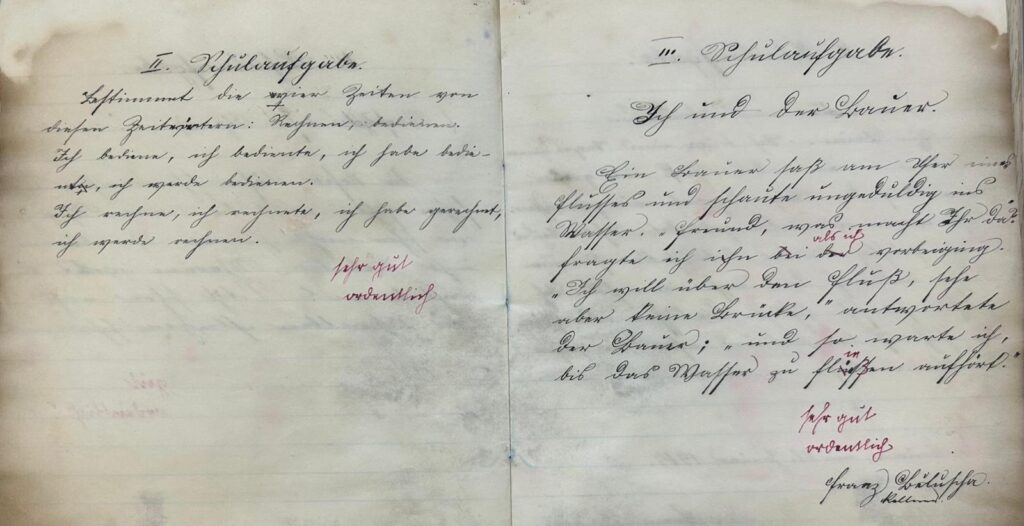 II. Schulaufgabe.
Bestimmt die vier Zeiten von
diesen Zeitwörtern: Rechnen, bedienen.
Ich bediene, ich bediente, ich habe bedie-
nt, ich werde bedienen.
Ich rechne, ich rechnete, ich habe gerechnet,
ich werde rechnen.
sehr gut
ordentlich
III. Schulaufgabe.
Ich und der Bauer.
Ein Bauer saß am Ufer eines
Flusses und schaute ungeduldig ins
Wasser. „Freund, was macht Ihr da?"
als ich
fragte ich ihn bei der vorbeiging.
„Ich will über den Fluß, sehe
aber keine Brücke," antwortete
der Bauer; „und so warte ich,
bis das Wasser zu fließen aufhört."
sehr gut
ordentlich
Franz Beluscha.